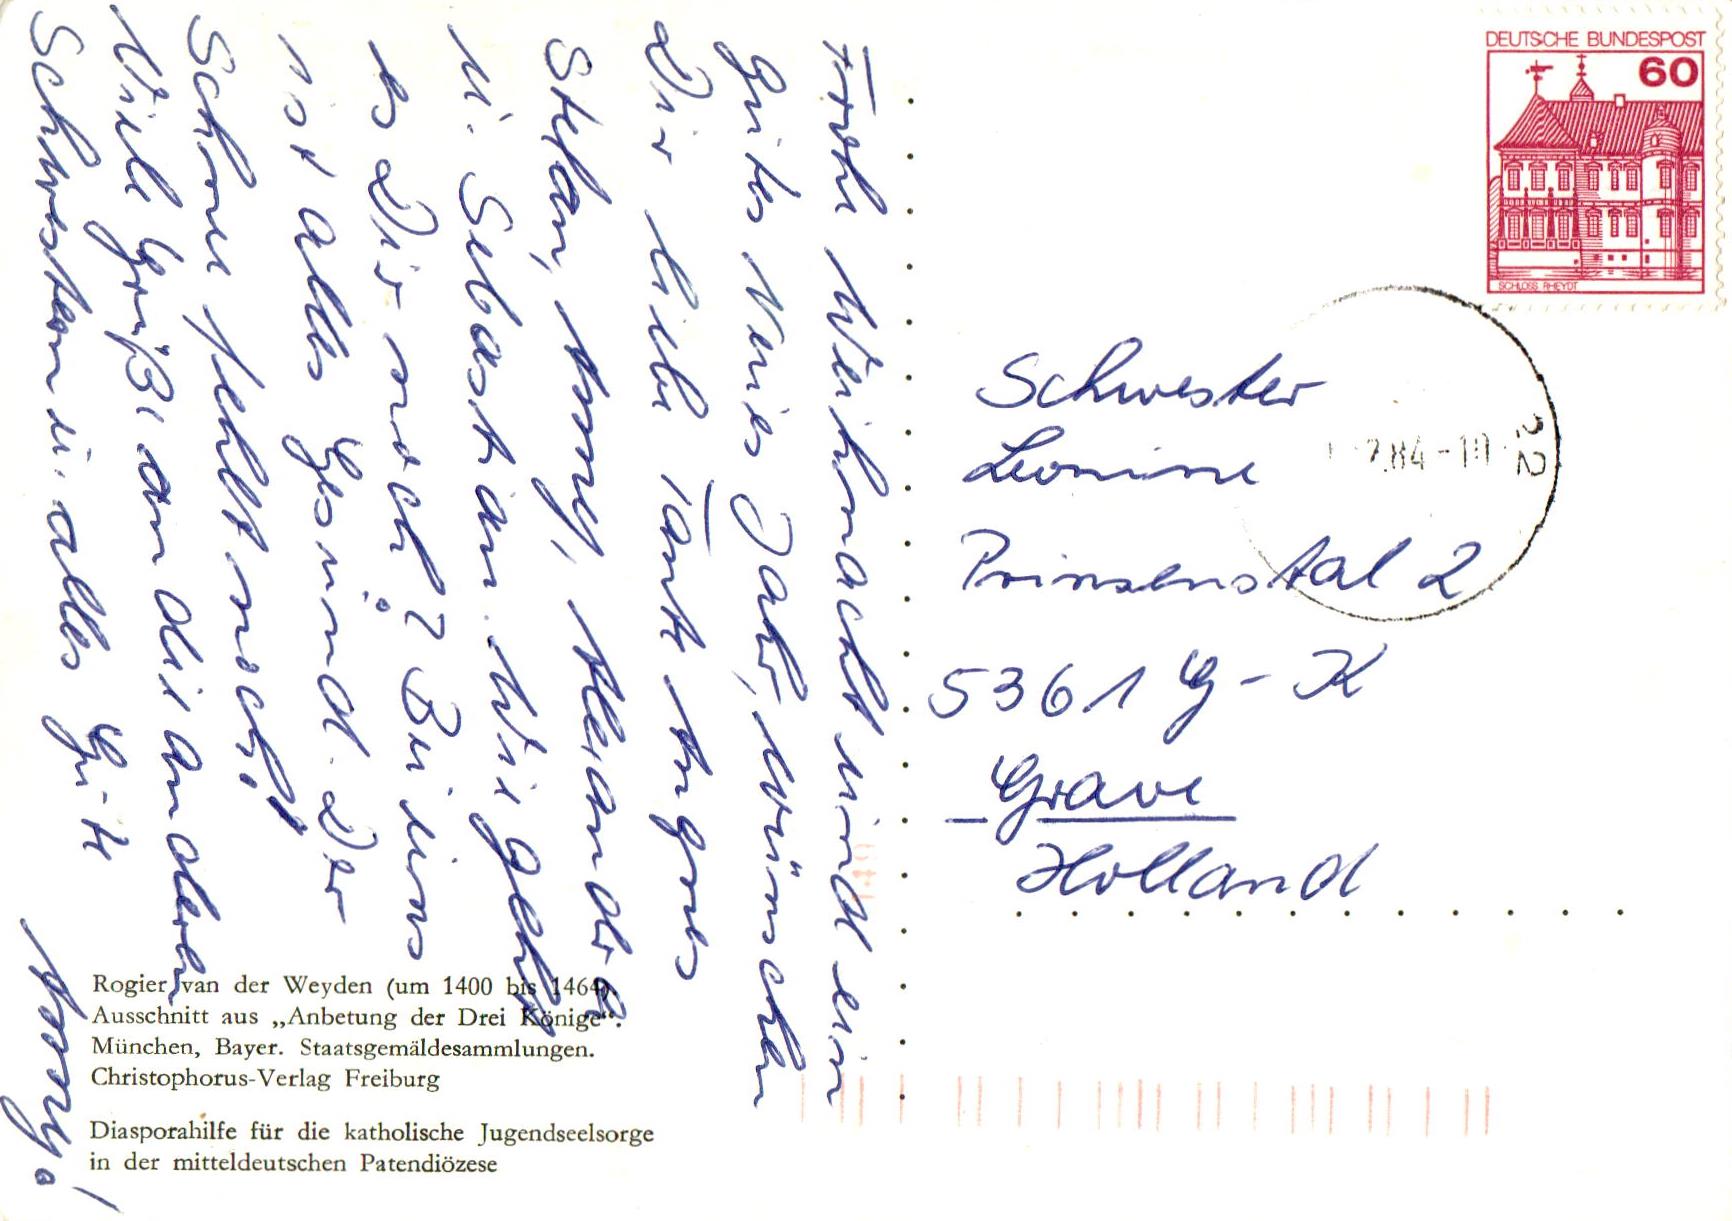 Frohe Weihnacht und ein
gutes Neues Jahr, wünschen
Dir liebe Tante Agnes
Stefan, Anny, Alexandra
u. Sebastian. Wie geht
es Dir noch? Bei uns
ist alles Gesund. Der
Schnee fehlt noch!
Viele Grüße an die anderen
Schwestern u. alles Gute
Anny!
Rogier van der Weyden (um 1400 bis 1464).
Ausschnitt aus „Anbetung der Drei Könige“.
München, Bayer. Staatsgemäldesammlungen.
Christophorus-Verlag Freiburg
Diasporahilfe für die katholische Jugendseelsorge
in der mitteldeutschen Patendiözese
DEUTSCHE BUNDESPOST
60
SCHLOSS RHEYDT
2.84-10
22
Schwester
Leonine
Prinsenstal 2
5361 G-K
Grave
Holland